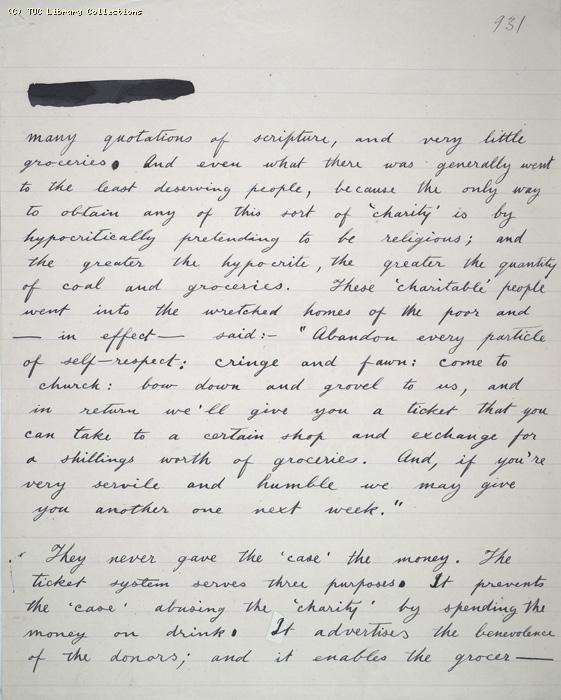 (C) TUC Library Collections
931
many quotations of scripture, and very little
groceries. And even what there was generally went
to the least deserving people, because the only way
to obtain any of this sort of 'charity' is by
hypocritically pretending to be religious; and
the greater the hypocrite, the greater the quantity
of coal and groceries. These 'charitable' people
went into the wretched homes of the poor and
— in effect — said:- "Abandon every particle
of self-respect: cringe and fawn: come to
church: bow down and grovel to us, and
in return we'll give you a ticket that you
can take to a certain shop and exchange for
a shillings worth of groceries. And, if you're
very servile and humble we may give
you another one next week."
They never gave the 'case' the money. The
ticket system serves three purposes. It prevents
the 'case' abusing the 'charity' by spending the
money on drink. It advertises the benevolence
of the donors; and it enables the grocer —